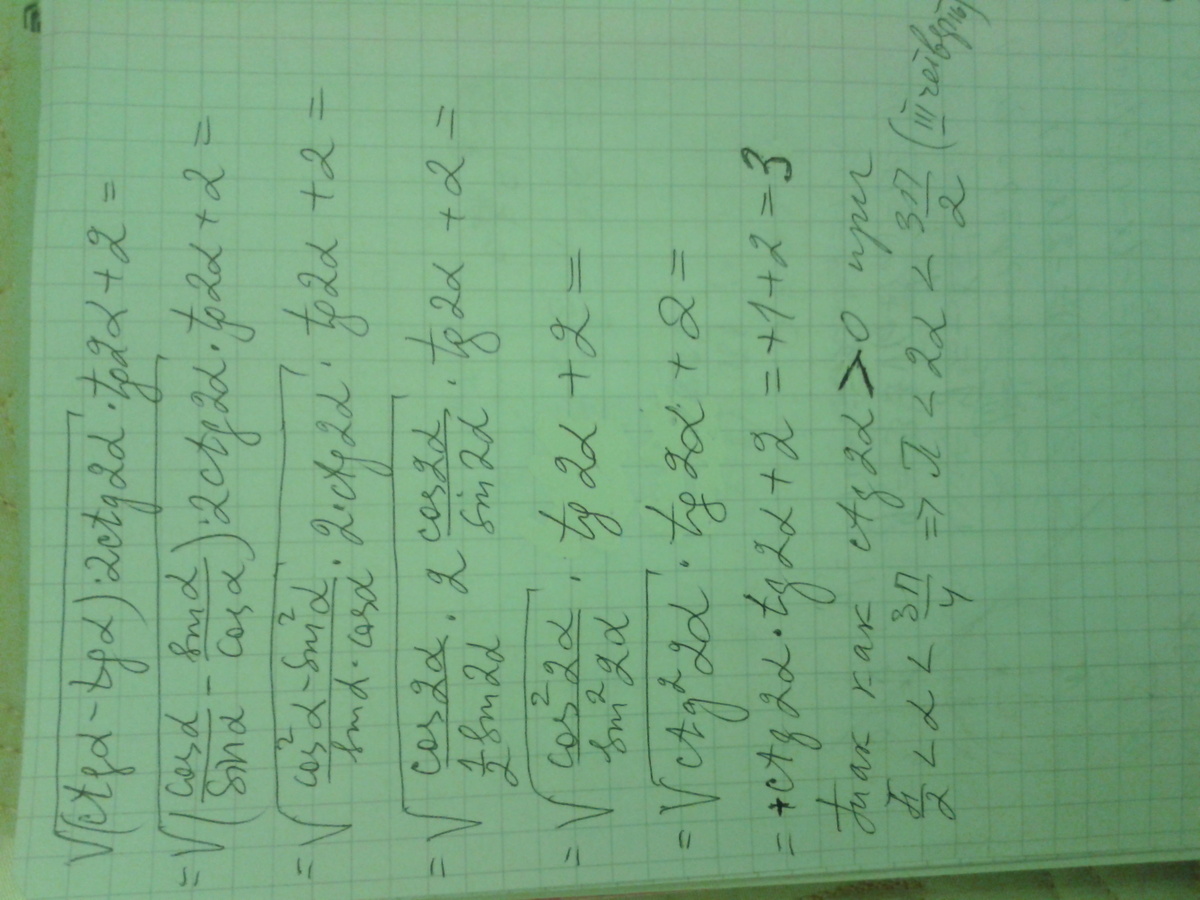 √(ctgα - tgα)·2ctg2α · tg2α + 2 =
= √(cosα/sinα - sinα/cosα)·2ctg2α · tg2α + 2 =
= √(cos²α - sin²α)/(sinα · cosα) · 2·ctg2α · tg2α + 2 =
= √cos2α/(½ sin2α) · 2 cos2α/sin2α · tg2α + 2 =
= √cos²2α/sin²2α · tg2α + 2 =
= √ctg²2α · tg2α + 2 =
= +ctg2α · tg2α + 2 = +1 + 2 = 3
так как ctg2α > 0 при
π/2 < α < 3π/4 => π < 2α < 3π/2 (III четверть)